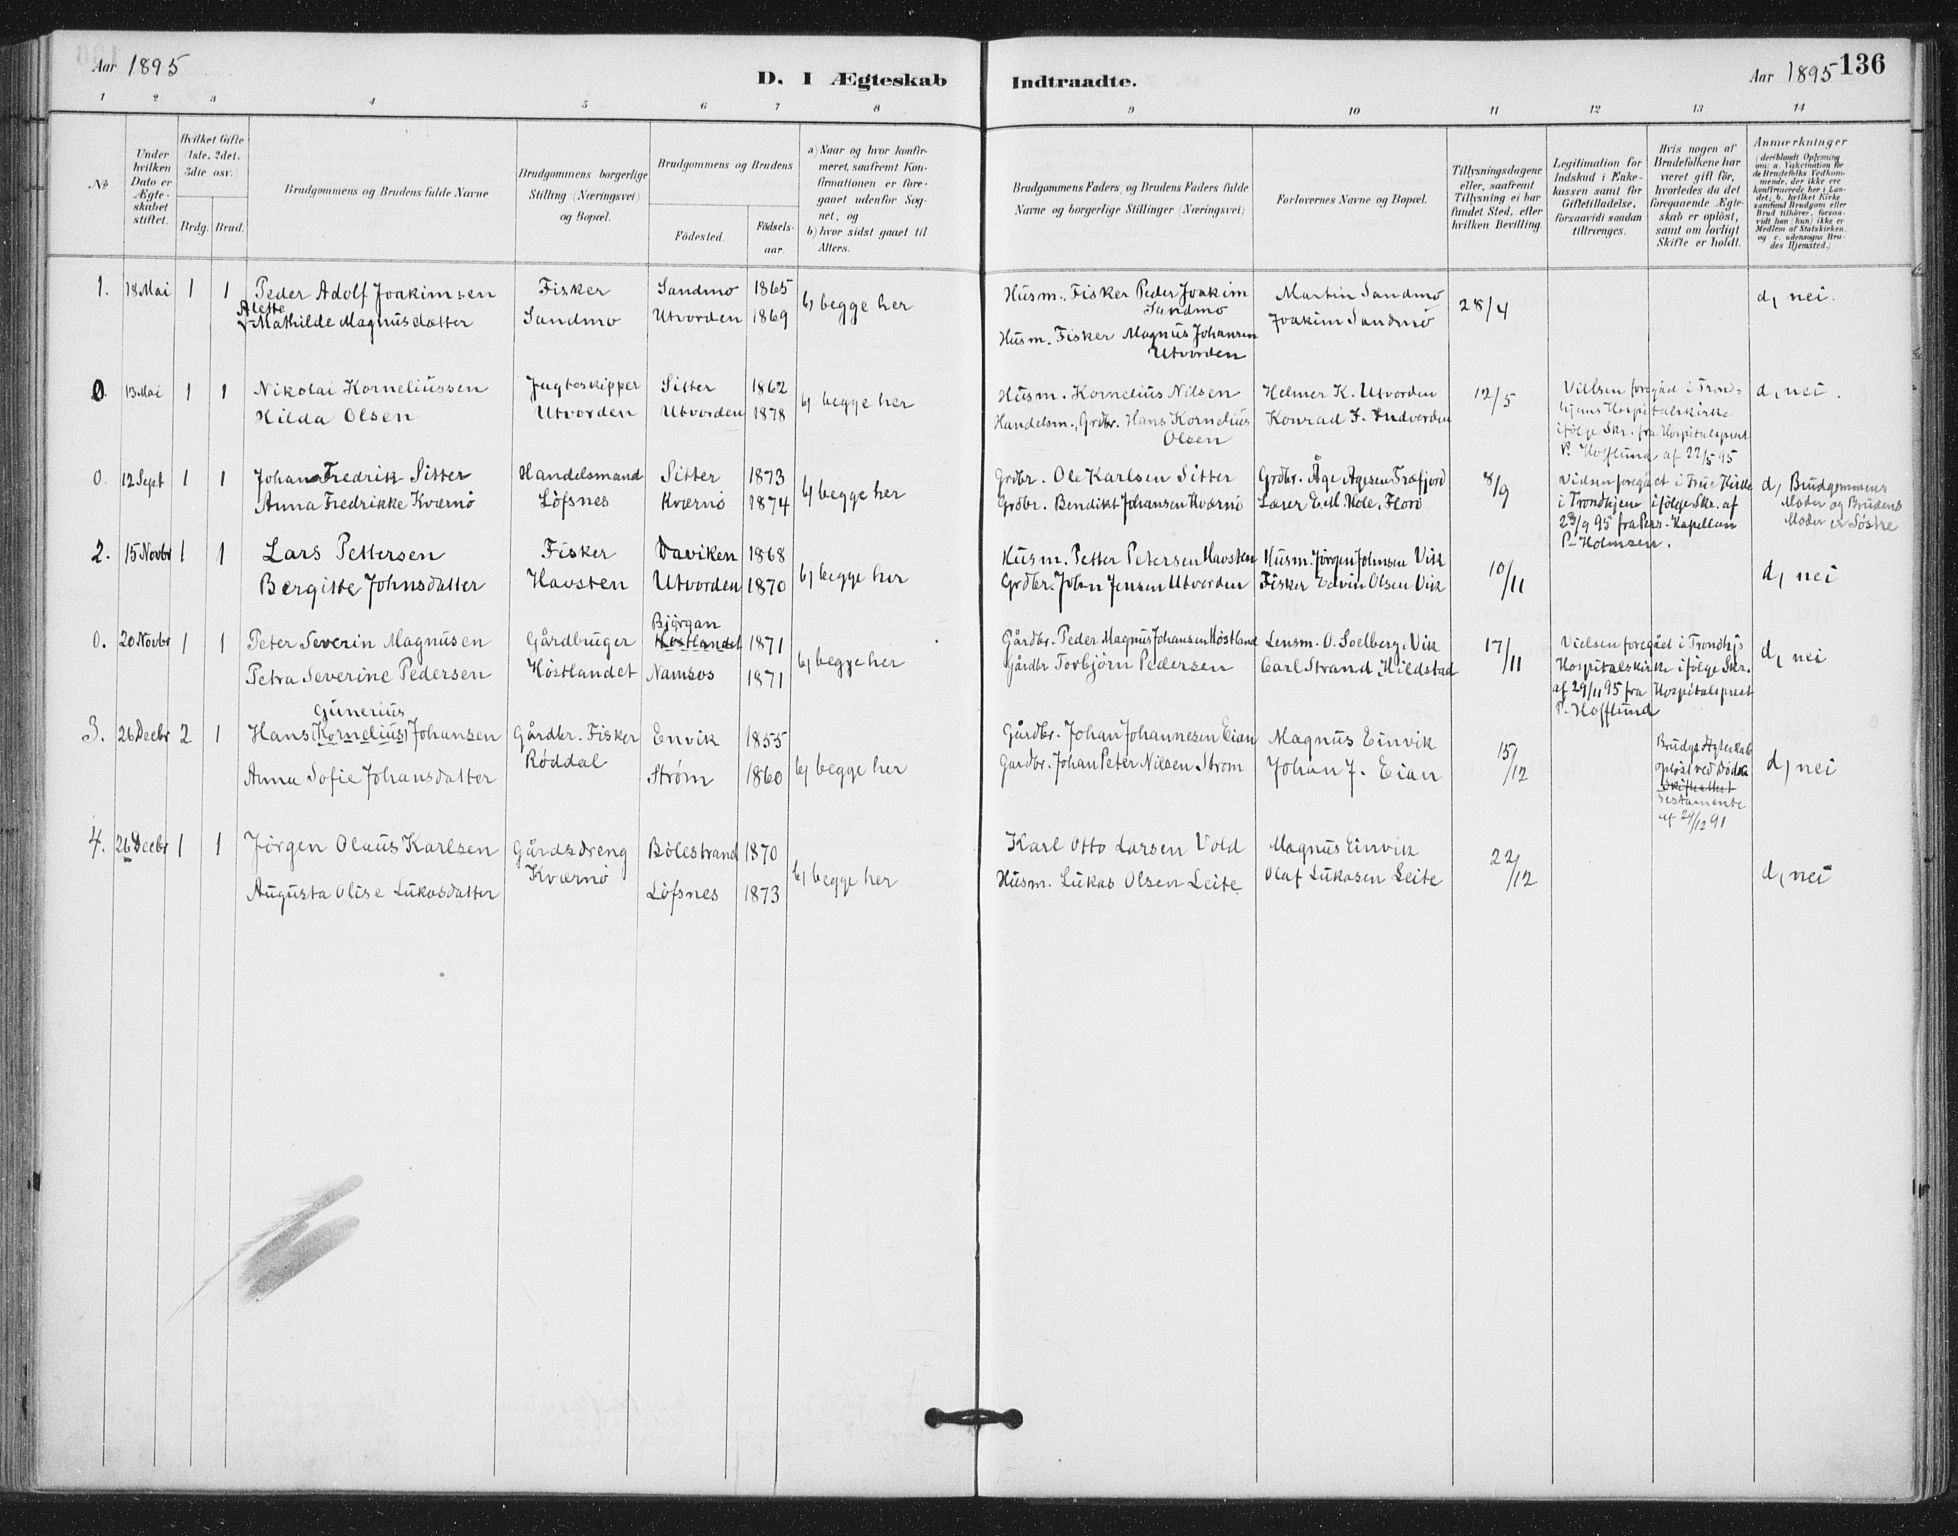 Aar 1895
D. I Ægteskab Indtraadte.
Aar 1895 136
1 2 3 4 5 6 7 8 9 10 11 12 13 14
№
Under hvilken Dato er Ægteskabet stiftet.
Hvilket Gifte (1ste, 2det, 3die osv.)
Brdg. Brud.
Brudgommens og Brudens fulde Navne
Brudgommens borgerlige Stilling (Næringsvei) og Bopæl.
Brudgommens og Brudens
Fødested.
Fødselsaar.
a) Naar og hvor konfirmeret, saafremt Konfirmationen er foregaaet udenfor Sognet, og
b) hvor sidst gaaet til Alters.
Brudgommens Faders, og Brudens Faders fulde Navne og borgerlige Stillinger (Næringsvei)
Forlovernes Navne og Bopæl.
Tillysningsdagene eller, saafremt Tillysning ei har fundet Sted, efter hvilken Bevilling.
Legitimation for Indskud i Enkekassen samt for Giftetilladelse, forsaavidt saadan tiltrænges.
Hvis nogen af Brudefolkene har været gift før, hvorledes da det foregaaende Ægteskab er opløst, samt om lovligt Skifte er holdt.
Anmærkninger (deriblandt Oplysning om: a. Vakcination for de Brudefolks Vedkommende, der ikke ere konfirmerede her i Landet; b. hvilket Kirkesamfund Brudgom eller Brud tilhører, forsaavidt han (hun) ikke er Medlem af Statskirken, og c. udensogns Brudes Hjemsted.)
1. 18 Mai 1 1 Peder Adolf Joakimsen Fisker Sandmo 1865 b) begge her Husm. Fisker Peder Joakim Martin Sandmo 28/4 d, nei.
Sandmo
Alette
Mathilde Magnusdatter Sandmo Utvorden 1869 Joakim Sandmo
Husm. Fisker Magnus Johansen
Utvorden
0. 13 Mai 1 1 Nikolai Korneliussen Jagteskipper Sitter 1862 b) begge her Husm. Kornelius Nilsen Helmer K. Utvorden 12/5 Vielsen foregåd i Trond- d, nei.
Hilda Olsen Utvorden Utvorden 1878 Handelsm., Grdbr. Hans Kornelius Konrad J. Indvorden hjems Hospitalskirke
Olsen ifølge Skr. fra Hospitalsprest
P. Hofflund af 22/5 95
0. 12 Sept 1 1 Johan Fredrik Sitter Handelsmand Sitter 1873 b) begge her Grdbr. Ole Karlsen Sitter Grdbr. Åge Agesen Træfjord 8/9 Vielsen foregået i Frue Kirke d, Brudgommens
Anna Fredrikke Kværnø Löfsnes Kværnö 1874 Grdbr. Benedikt Johansen Kværnö Lærer Edl. Hole, Florö i Trondhjem ifølge Skr. af Moder og Brudens
23/9 95 fra Pers. Kapellan Moder er Søstre
P. Holmsen.
2. 15 Novbr 1 1 Lars Pettersen Fisker Daviken 1868 b) begge her Husm. Petter Petersen Havsten Husm. Jörgen Johnsen Vik 10/11 d, nei
Bergitte Johnsdatter Havsten Utvorden 1870 Grdbr. John Jensen Utvorden Fisker Edvin Olsen Vik
Bjørgan
0. 20 Novbr 1 1 Peter Severin Magnusen Gårdbruger Høstlandet 1871 b) begge her Gårdbr. Peder Magnus Johansen Høstland Lensm. O. Soelberg, Vik 17/11 Vielsen foregåd i Trondhjs d, nei
Petra Severine Pedersen Höstlandet Namsos 1871 Gårdbr Torbjörn Pedersen Carl Strand Hildstad Hospitalskirke ifölge Skr.
af 29/11 95 fra Hospitalsprest
P. Hofflund
Gunerius
3. 26 Decbr 2 1 Hans (Kornelius) Johansen Gårdbr. Fisker Envik 1855 b) begge her Gårdbr. Johan Johannesen Eian Magnus Einvik 15/12 Brudgs Ægteskab d, nei
Anna Sofie Johansdatter Røddal Strøm 1860 Gardbr. Johan Peter Nilsen Strøm Johan J. Eian opløst ved Døden
Skifteattest
Testamente
af 29/12 91
4. 26 Decbr 1 1 Jørgen Olaus Karlsen Gårdsdreng Bölestrand 1870 b) begge her Karl Otto Larsen Vold Magnus Einvik 22/12 d, nei
Augusta Olise Lukasdatter Kværnö Löfsnes 1873 Husm. Lukas Olsen Leite Olaf Lukasen Leite